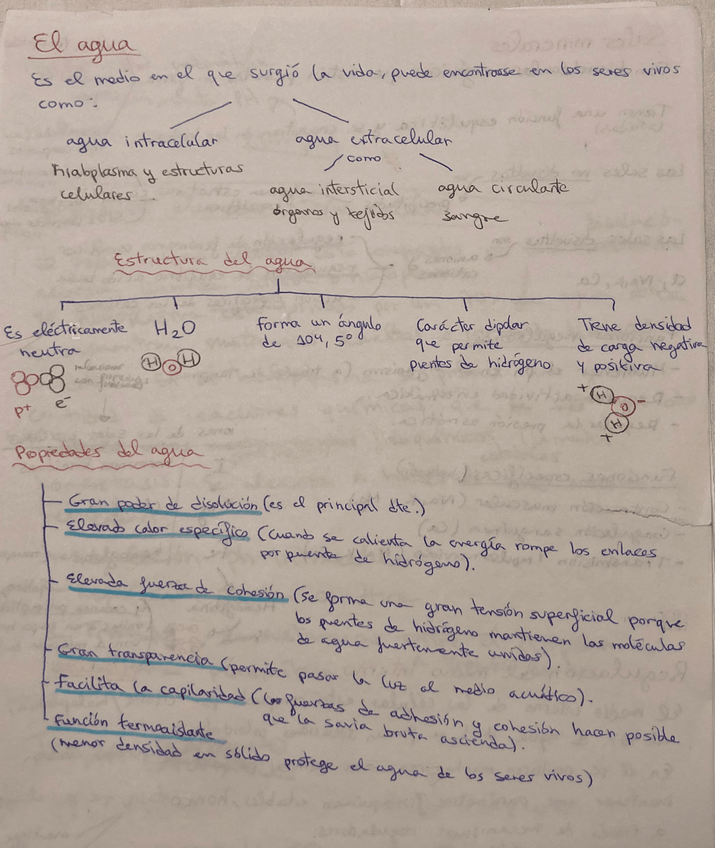 El agua
Es el medio en el que surgió la vida, puede encontrarse en los seres vivos
como:
agua intracelular
agua extracelular
y estructuras
celulares.
como
agua intersticial
órganos y tejidos
agua circulante
sangre
Estructura del agua
Es eléctricamente
neutra
p+
e-
H2O
H O H
forma un ángulo
de 104,5º
Carácter dipolar
que permite
puentes de hidrógeno
Tiene densidad
de carga negativa
y positiva
+ H O -
H
+
Propiedades del agua
Gran poder de disolución (es el principal dte.)
Elevado calor específico (cuando se calienta la energía rompe los enlaces
por puente de hidrógeno).
Elevada fuerza de cohesión (se forma una gran tensión superficial porque
los puentes de hidrógeno mantienen las moléculas
de agua fuertemente unidas).
Gran transparencia (permite pasar la luz al medio acuático).
Facilita la capilaridad (las fuerzas de adhesión y cohesión hacen posible
que la savia bruta ascienda).
Función termoaislante
(menor densidad en sólido protege el agua de los seres vivos)